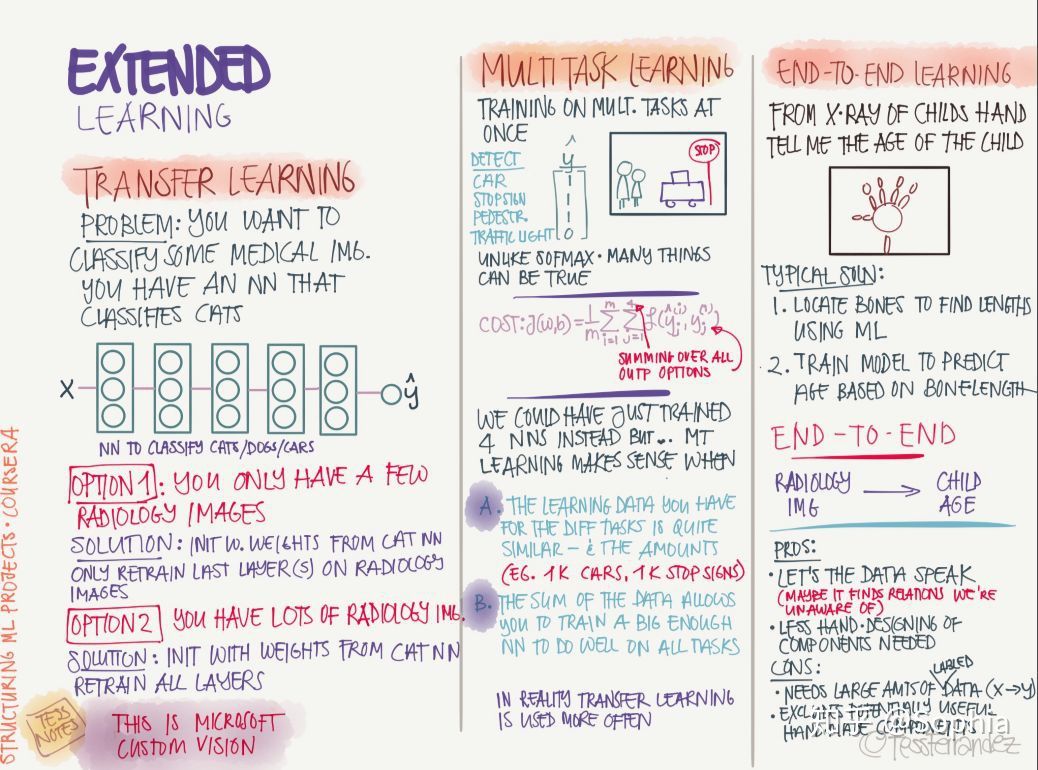 EXTENDED
LEARNING
TRANSFER LEARNING
PROBLEM: YOU WANT TO
CLASSIFY SOME MEDICAL IMG.
YOU HAVE AN NN THAT
CLASSIFIES CATS
X
ŷ
NN TO CLASSIFY CATS/DOGS/CARS
OPTION 1: YOU ONLY HAVE A FEW
RADIOLOGY IMAGES
SOLUTION: INIT W. WEIGHTS FROM CAT NN
ONLY RETRAIN LAST LAYER(S) ON RADIOLOGY
IMAGES
OPTION 2 YOU HAVE LOTS OF RADIOLOGY IMG.
SOLUTION: INIT WITH WEIGHTS FROM CAT NN
RETRAIN ALL LAYERS
THIS IS MICROSOFT
CUSTOM VISION
TESS
NOTES
STRUCTURING ML PROJECTS · COURSERA
MULTITASK LEARNING
TRAINING ON MULT. TASKS AT
ONCE
DETECT
CAR
STOPSIGN
PEDESTR.
TRAFFIC LIGHT
ŷ
1
0
STOP
UNLIKE SOFMAX · MANY THINGS
CAN BE TRUE
COST: J(w,b) = 1/m Σ i=1 m Σ j=1 4 L(ŷj(i), yj(i))
SUMMING OVER ALL
OUTP OPTIONS
WE COULD HAVE JUST TRAINED
4 NNS INSTEAD BUT... MT
LEARNING MAKES SENSE WHEN
A. THE LEARNING DATA YOU HAVE
FOR THE DIFF TASKS IS QUITE
SIMILAR – & THE AMOUNTS
(EG. 1K CARS, 1K STOP SIGNS)
B. THE SUM OF THE DATA ALLOWS
YOU TO TRAIN A BIG ENOUGH
NN TO DO WELL ON ALL TASKS
IN REALITY TRANSFER LEARNING
IS USED MORE OFTEN
END-TO-END LEARNING
FROM X-RAY OF CHILDS HAND
TELL ME THE AGE OF THE CHILD
TYPICAL SOLN:
1. LOCATE BONES TO FIND LENGTHS
USING ML
2. TRAIN MODEL TO PREDICT
AGE BASED ON BONELENGTH
END-TO-END
RADIOLOGY
IMG
→
CHILD
AGE
PROS:
· LET'S THE DATA SPEAK
(MAYBE IT FINDS RELATIONS WE'RE
UNAWARE OF)
· LESS HAND-DESIGNING OF
COMPONENTS NEEDED
CONS:
LABLED
· NEEDS LARGE AMTS OF DATA (X→Y)
· EXCLUDES POTENTIALLY USEFUL
HANDMADE COMPONENTS
@TessFerrandez